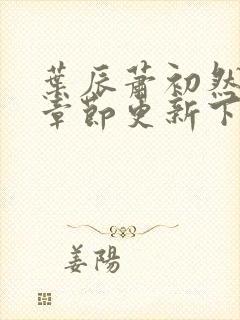 葉辰蕭初然
章節更新下
姜陽